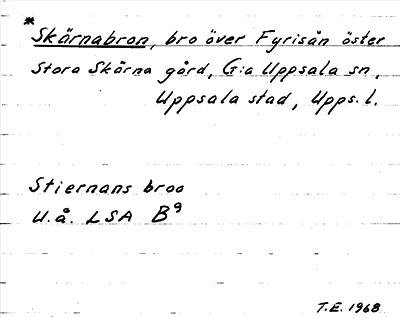 * Skärnabron, bro över Fyrisån öster
Stora Skärna gård, G:a Uppsala sn,
Uppsala stad, Upps. l.
Stiernans broo
U.å. LSA B⁹
T.E. 1968